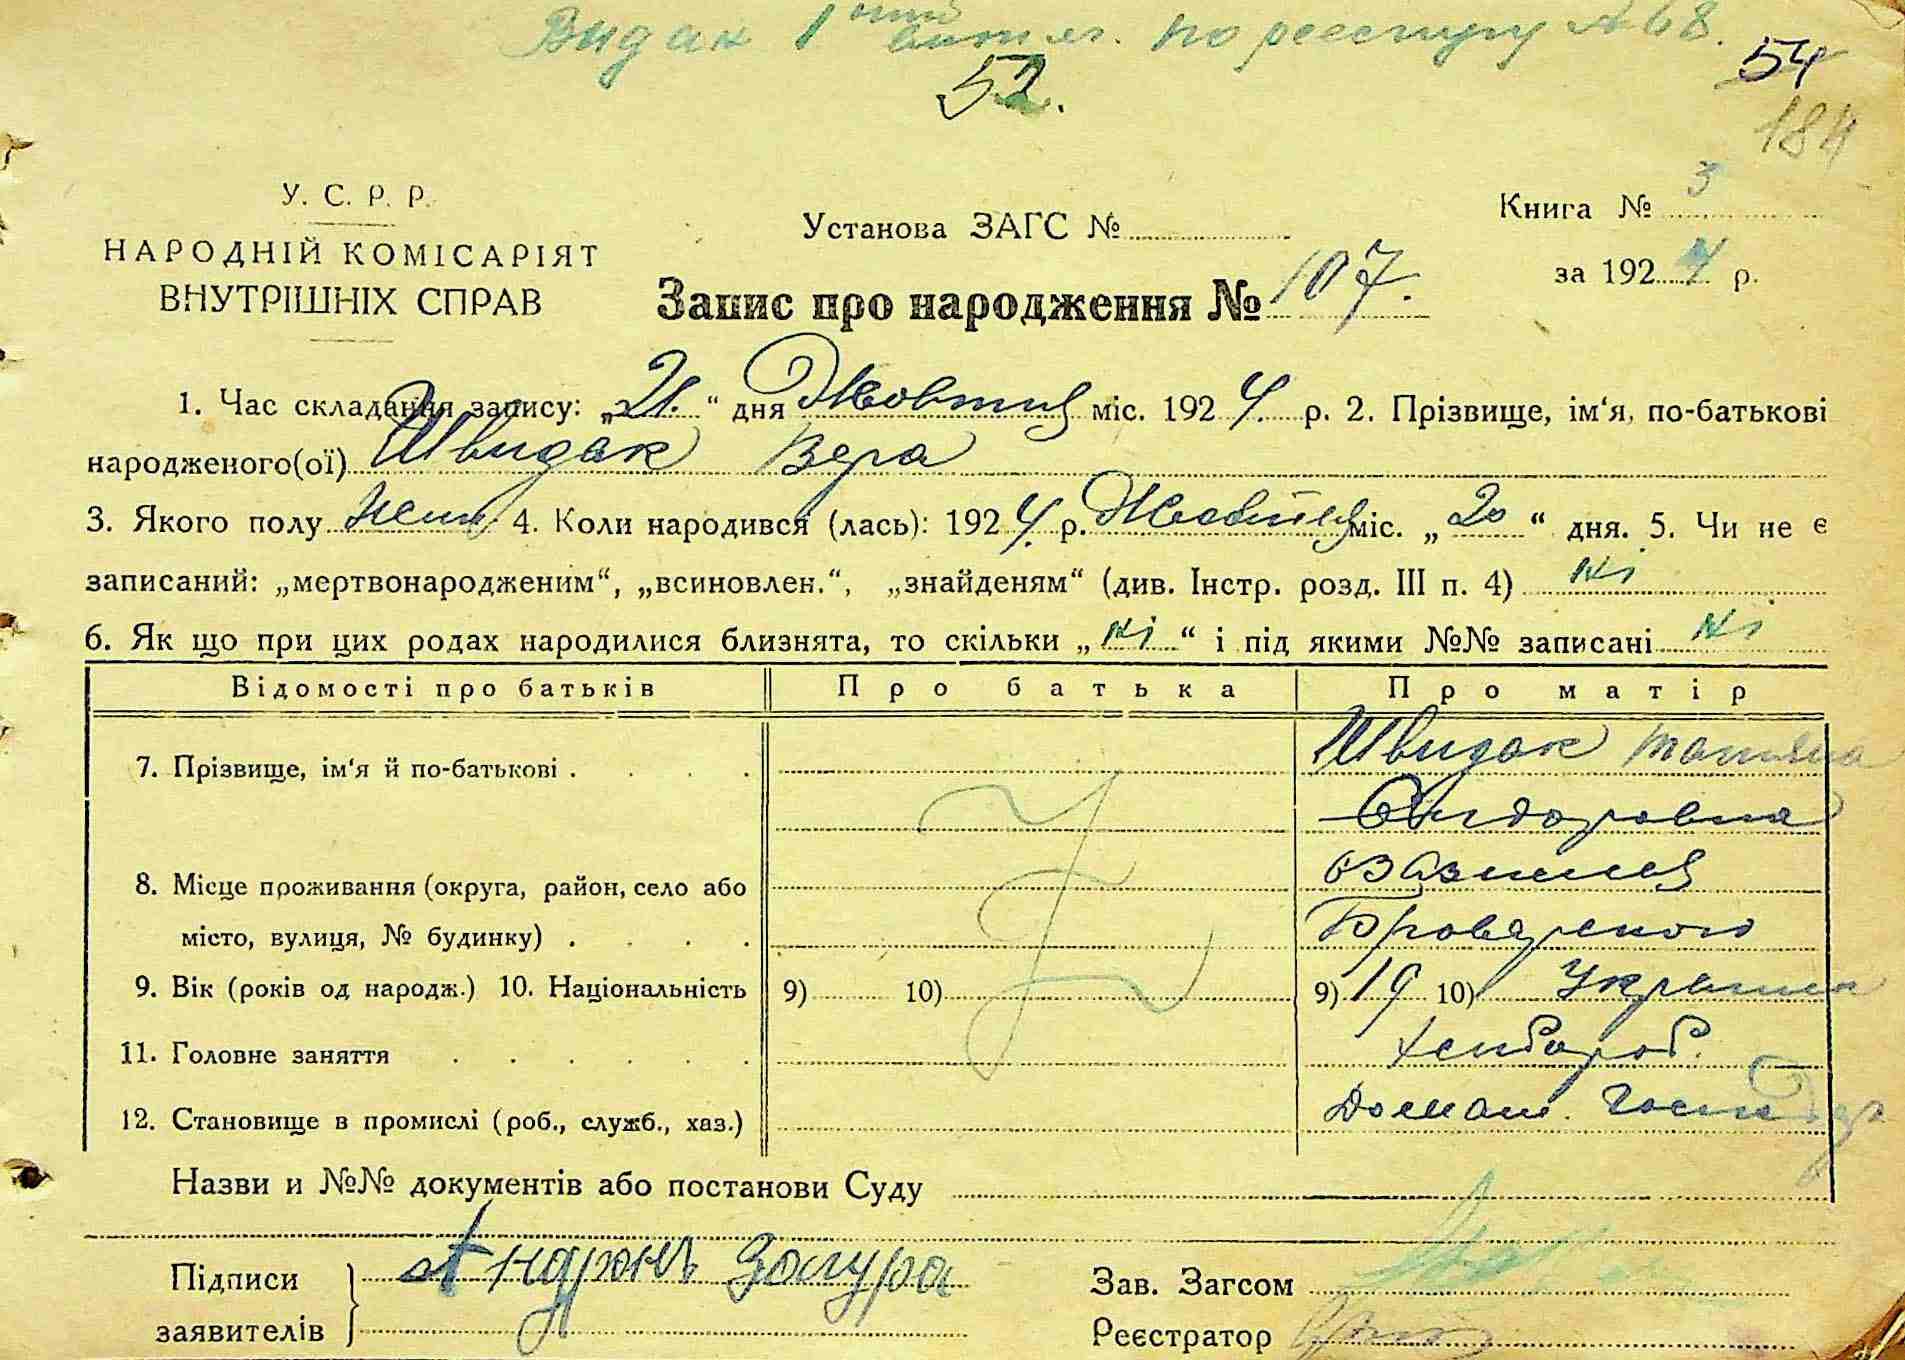 Видак 1 витяг. по реестру №68.
52.
54
184
У. С. Р. Р.
НАРОДНІЙ КОМІСАРІЯТ
ВНУТРІШНІХ СПРАВ
Установа ЗАГС №
Запис про народження № 107.
Книга № 3
за 1924 р.
1. Час складання запису: „21.“ дня Жовтня міс. 1924. р. 2. Прізвище, ім‘я, по-батькові
народженого(ої) Швидак Вера
3. Якого полу жен. 4. Коли народився (лась): 1924 р. Жовтня міс. „20“ дня. 5. Чи не є
записаний: „мертвонародженим“, „всиновлен.“, „знайденям“ (див. Інстр. розд. III п. 4) Ні
6. Як що при цих родах народилися близнята, то скільки „Ні“ і під якими №№ записані Ні
Відомості про батьків Про батька Про матір
7. Прізвище, ім‘я й по-батькові . . . . Швидак Татияна
Сидоровна
8. Місце проживання (округа, район, село або
місто, вулиця, № будинку) . . . .
9. Вік (років од народж.) 10. Національність 9) 10) 9) 19 10) Украинка
11. Головне заняття . . . . . . хлібороб.
12. Становище в промислі (роб., служб., хаз.) Домаш. Господар
Назви и №№ документів або постанови Суду
Підписи
заявителів
Андрюнь Зогура
Зав. Загсом
Реєстратор